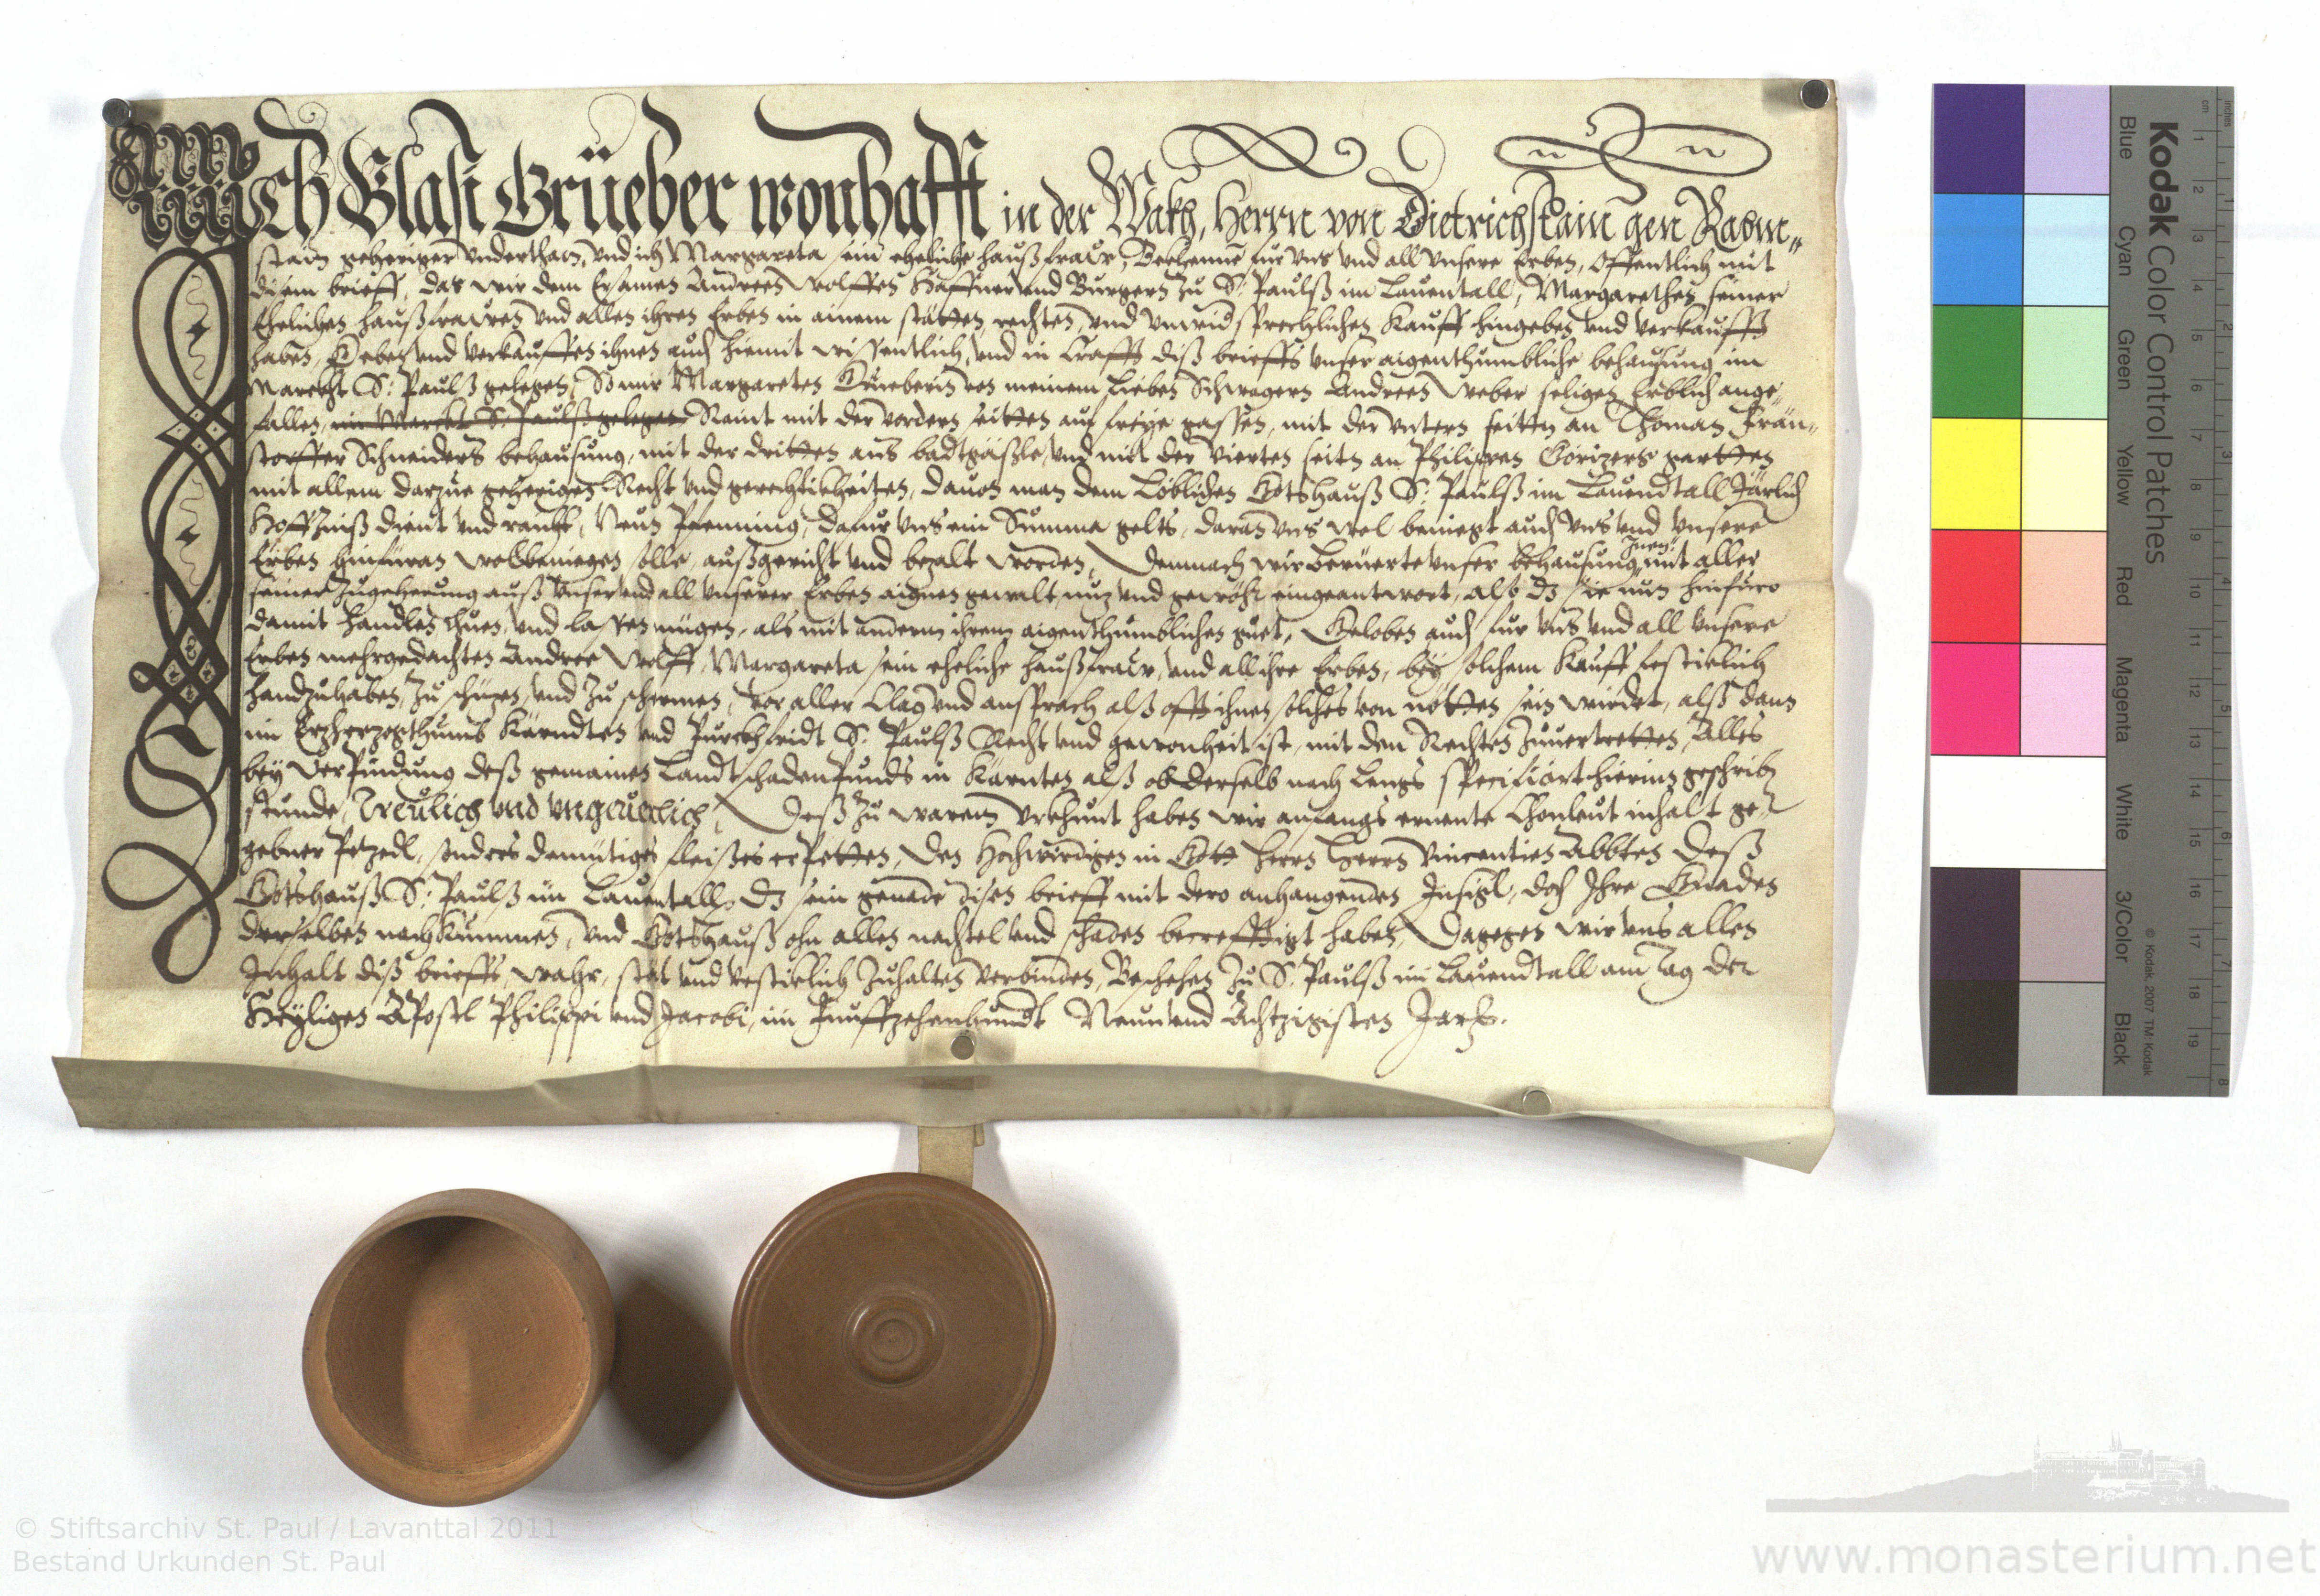 Ich Blasi Grüeber wonhafft in der Wakh, Herrn von Dietrichstain gen Rabm-
stain geheriger underthan, und ich Margareta sein eheliche haußfraw, Bekhenne für uns und all unsere Erben, offentlich mit
disem brieff, das wir dem Ersamen Andreen Wolffen Haffner und Burgern zu S: Paulß im Lauentall, Margarethen seiner
Ehelichen haußfrawen und allen ihren Erben in ainem stätten, rechten, und unwidersprechlichen Kauff hingeben und verkaufft
haben, Geben und verkauffen ihnen auch hiemit wissentlich, und in Crafft diß brieffs unser aigenthumbliche behausung im
Marckht S: Paulß gelegen, So mir Margareten Grüeberin von meinem lieben Schwagern Andreen Weber seligen Erblich ange-
fallen, im Marckt S: Paulß gelegen Raint mit der vordern seitten auf freye gassen, mit der untern seitten an Thoman
Schneiders behausung, mit der dritten ans badtgässle, und mit der Vierten seiten an Philippen Görizers gartten
mit allem darzue geherigen Recht und gerechtikheiten, dauon man dem Löblichen Gotshauß S: Paulß im Lauendtall Järlich
Hoffzinß dient und raicht, Neun Pfenning, dafür uns ein Summa gelts, daran uns wol beniegt auch uns und unsere
Erben hinfüran wolbeniegen solle, außgericht und bezalt worden, Demnach wir berüerte unser behausung Inen mit aller
seiner Zugeherung auß unser und all unserer Erben aignen gewalt, nuz und gewöhr eingeantwort, also dz sie nun hinfüro
damit handlen thuen, und lassen mügen, als mit anderm ihrem aigenthumblichen guet, Geloben auch für uns und all unsere
Erben mehrgedachten Andree Wolff, Margareta sein eheliche haußfraw, und all ihre Erben, bey solchem Kauff festiclich
handzuhaben, zu schüzen, und zu schermen, vor aller Clag und ansprach alß offt ihnen solches von nötten sein wirdet, alß dann
im Erzherzogthumb Kärndten und Purckhfridt S: Paulß Recht und gewonheit ist, mit den Rechten zuuertretten, Alles
bey Verpindung deß gemainen Landtschadenpunds in Kärnten alß ob derselb nach lengs specificiert hierinn geschriben
stunde, Treülich und ungeuerlich, Deß zu warem Urkhunt haben wir anfangs ernente Chonleut inhalt ge-
gebner Petzedl, sonders demütiges fleißes erpetten, Den Hochwirdigen in Gott Herrn Herrn Vincentien Abbten deß
Gotshauß S: Paulß im Lauentall, dz sein genade disen brieff mit dero anhangenden Insigl, doch Ihre Gnaden
derselben nachkummen, und Gotshauß ohn allen nachtel und schaden becrefftigt haben, Dagegen wir uns alles
Inhalt diß brieffs, wahr, stät und vesticlich zuhalten verbinden, Beschehen zu S: Paulß im Lauendtall am Tag der
Heyligen Apostl Philippi und Jacobi, im Funffzehenhundt Neunund Achtzigisten Jars.
Kodak Color Control Patches
Blue
Cyan
Green
Yellow
Red
Magenta
White
3/Color
Black
© Kodak, 2007 TM: Kodak
cm
1
2
3
4
5
6
7
8
9
10
11
12
13
14
15
16
17
18
19
inches
1
2
3
4
5
6
7
8
© Stiftsarchiv St. Paul / Lavanttal 2011
Bestand Urkunden St. Paul
www.monasterium.net